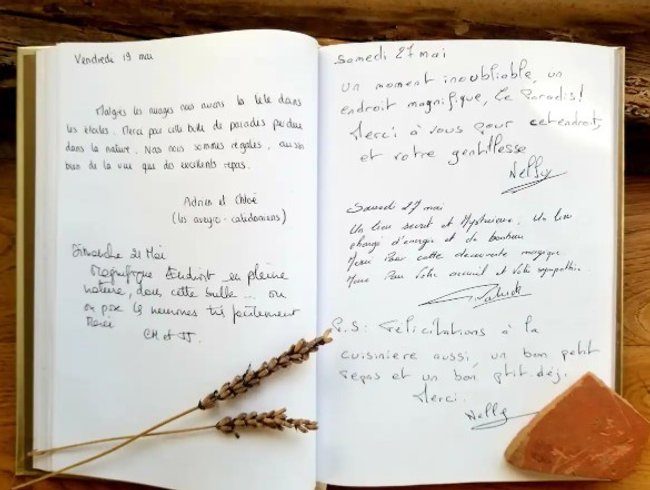 Vendredi 19 mai
Malgrés les nuages nous avons la tête dans
les étoiles. Merci pour cette bulle de paradis perdue
dans la nature. Nous nous sommes régalés, aussi
bien de la vue que des excellents repas.
Adrien et Chloé
(les aveyro-calédoniens)
Dimanche 21 Mai
Magnifique Endroit en pleine
nature, dans cette bulle ... on
on pose les neurones très facilement
Merci
CH et JJ.
Samedi 27 mai
Un moment inoubliable, un
endroit magnifique, Le Paradis!
Merci à vous pour cet endroit,
et votre gentillesse
Nelly
Samedi 27 mai
Un lieu secret et Mystérieux. Un lieu
chargé d'énergie et de bonheur
Merci Pour cette découverte magique
Merci Pour Votre accueil et Votre sympathie.
P.S: Félicitations à la
cuisinière aussi, un bon petit
repas et un bon p'tit-déj.
Merci.
Nelly